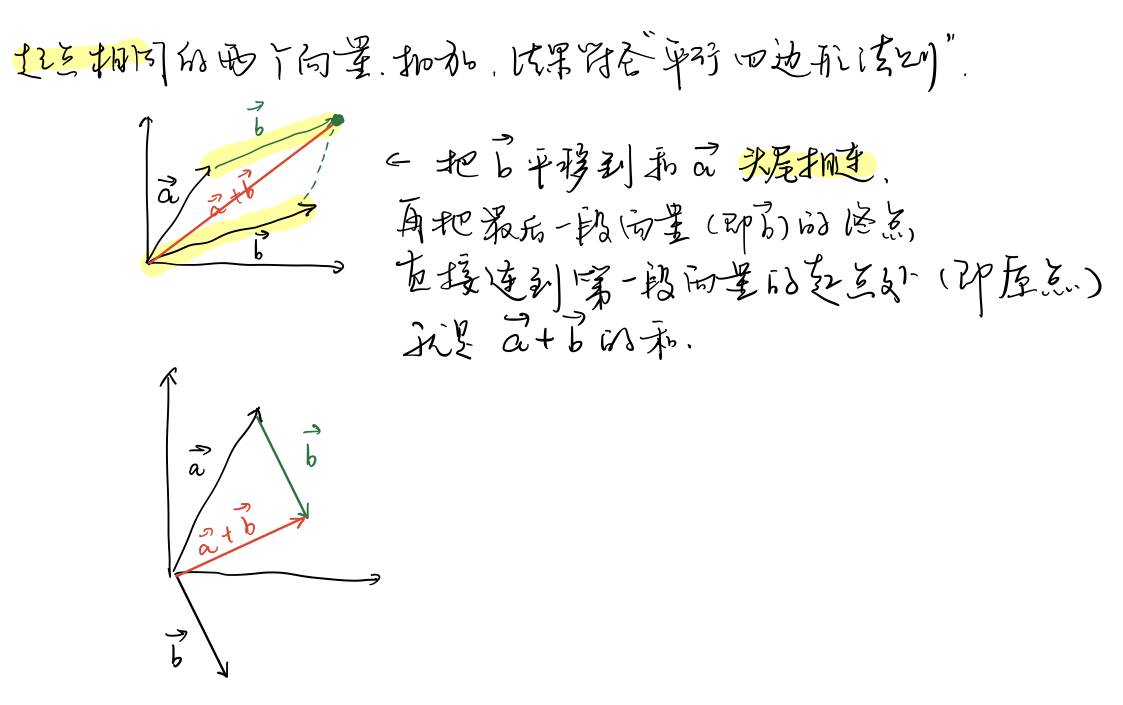 起点相同的两个向量.相加,结果符合“平行四边形法则”.
b⃗
a⃗
a⃗+b⃗
b⃗
← 把 b⃗ 平移到和 a⃗ 头尾相连,
再把最后一段向量(即b⃗)的终点,
直接连到第一段向量的起点处(即原点)
就是 a⃗+b⃗ 的和.
a⃗
b⃗
a⃗+b⃗
b⃗